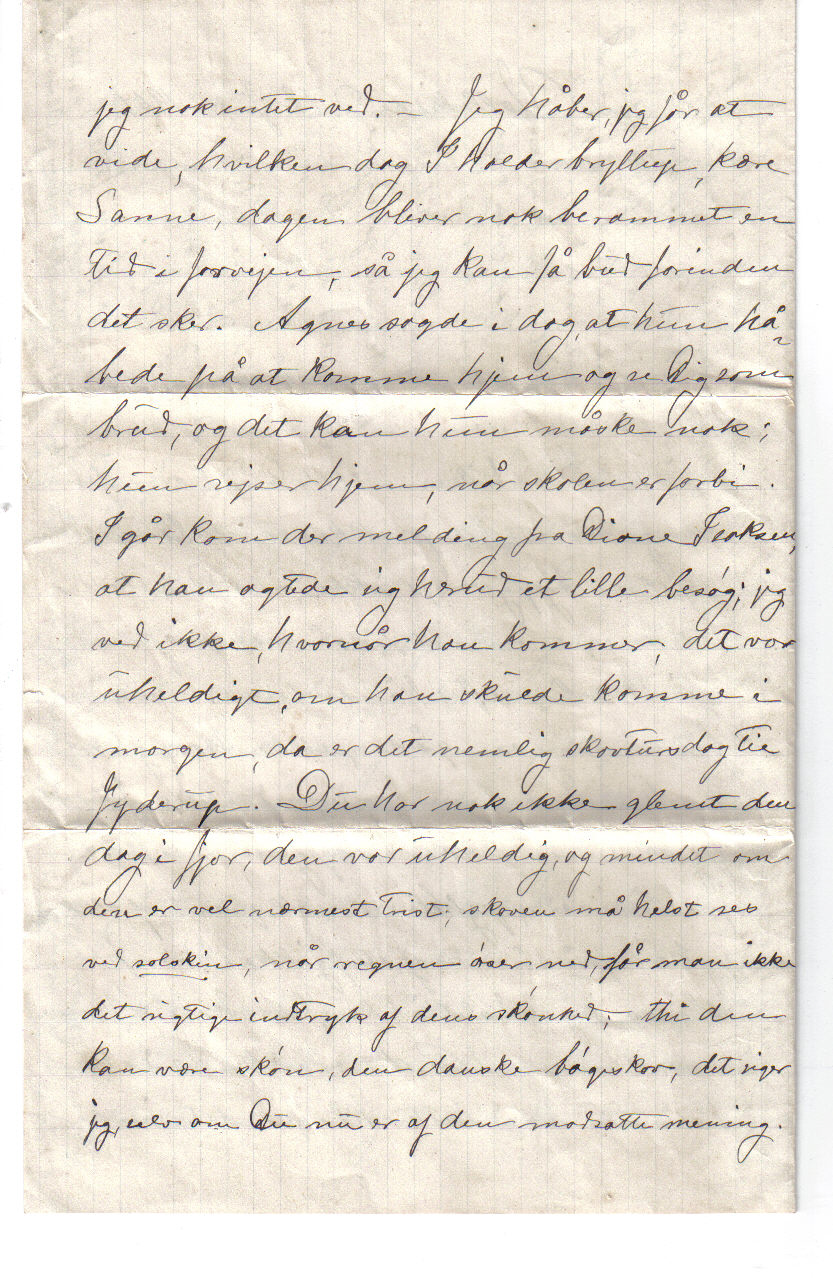 jeg nok intet ved. – Jeg håber, jeg får at
vide, hvilken dag I holder bryllup, kære
Sanne, dagen bliver nok berammet en
tid i forvejen, så jeg kan få bud forinden
det sker. Agnes sagde i dag, at hun hå-
bede på at komme hjem og se Dig som
brud, og det kan hun måske nok;
hun rejser hjem, når skolen er forbi.
I går kom der melding fra Dione Isaksen,
at han agtede sig herud et lille besøg; jeg
ved ikke, hvornår han kommer, det var
uheldigt, om han skulde komme i
morgen, da er det nemlig skovtursdag til
Jyderup. Du har nok ikke glemt den
dag i fjor, den var uheldig, og mindet om
den er vel nærmest trist; skoven må helst ses
ved solskin, når regnen øser ned, får man ikke
det rigtige indtryk af dens skønhed; – thi den
kan være skøn, den danske bøgeskov, det siger
jeg, selv om Du nu er af den modsatte mening.